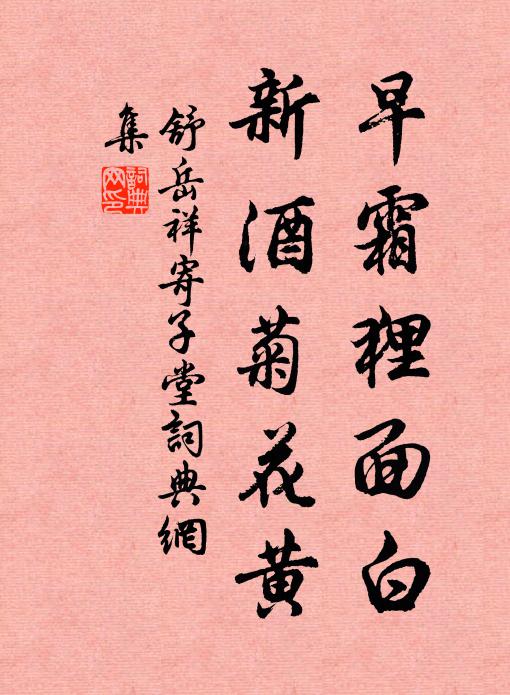 早霜狸面白
新酒菊花黄
舒岳祥寄子堂詞典網
集
詞典
网印